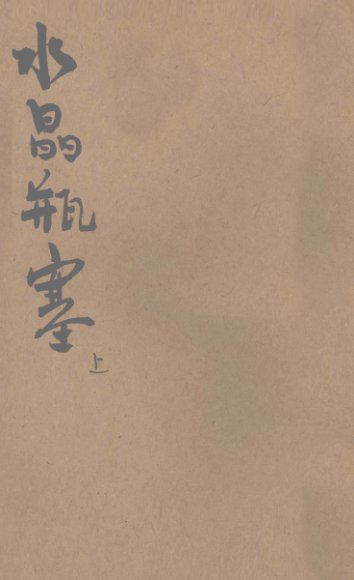 水晶瓶塞
上